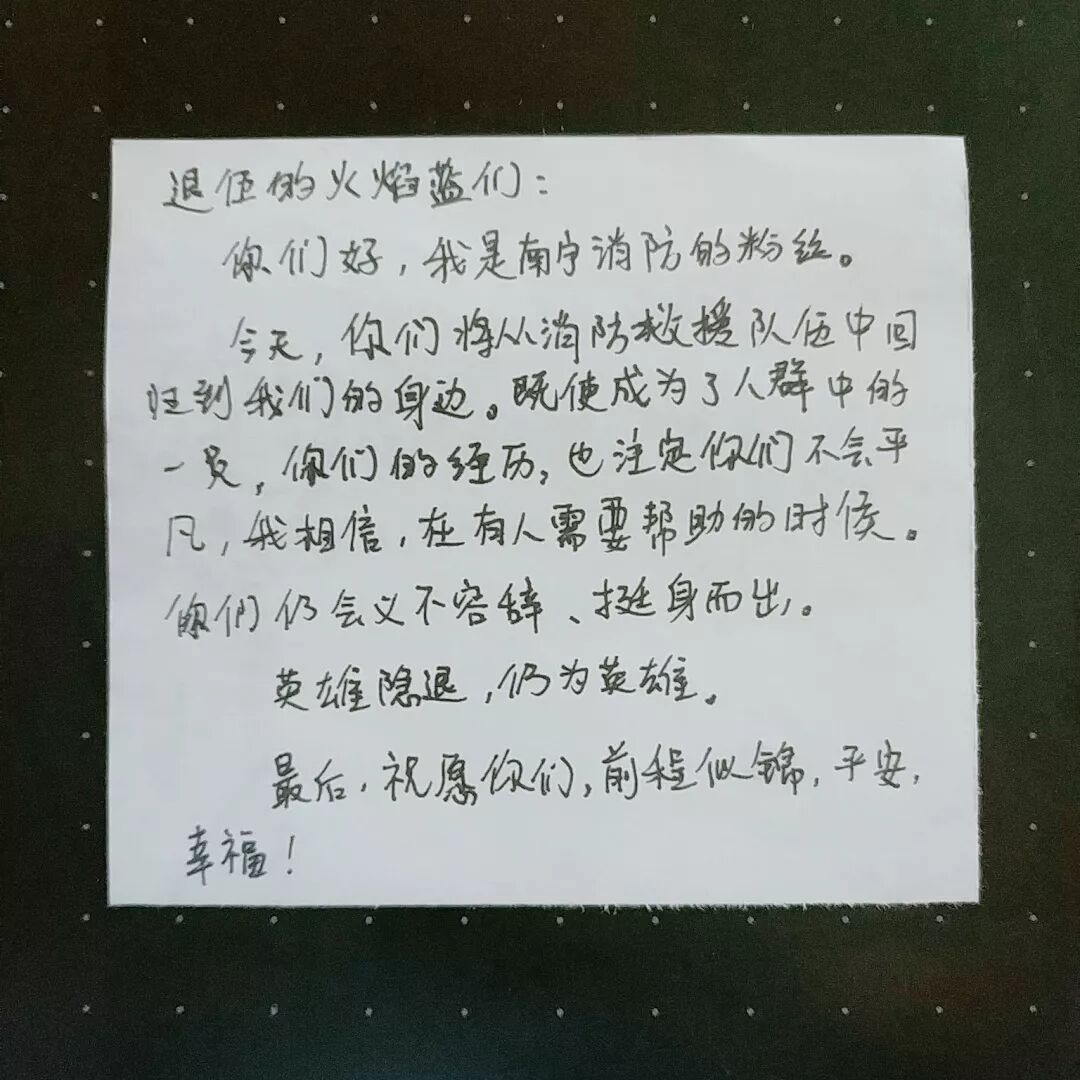 退伍的火焰蓝们：
你们好，我是南宁消防的粉丝。
今天，你们将从消防救援队伍中回
归到我们的身边。既使成为了人群中的
一员，你们的经历，也注定你们不会平
凡，我相信，在有人需要帮助的时候。
你们仍会义不容辞、挺身而出，。
英雄隐退，仍为英雄。
最后，祝愿你们，前程似锦，平安，
幸福！